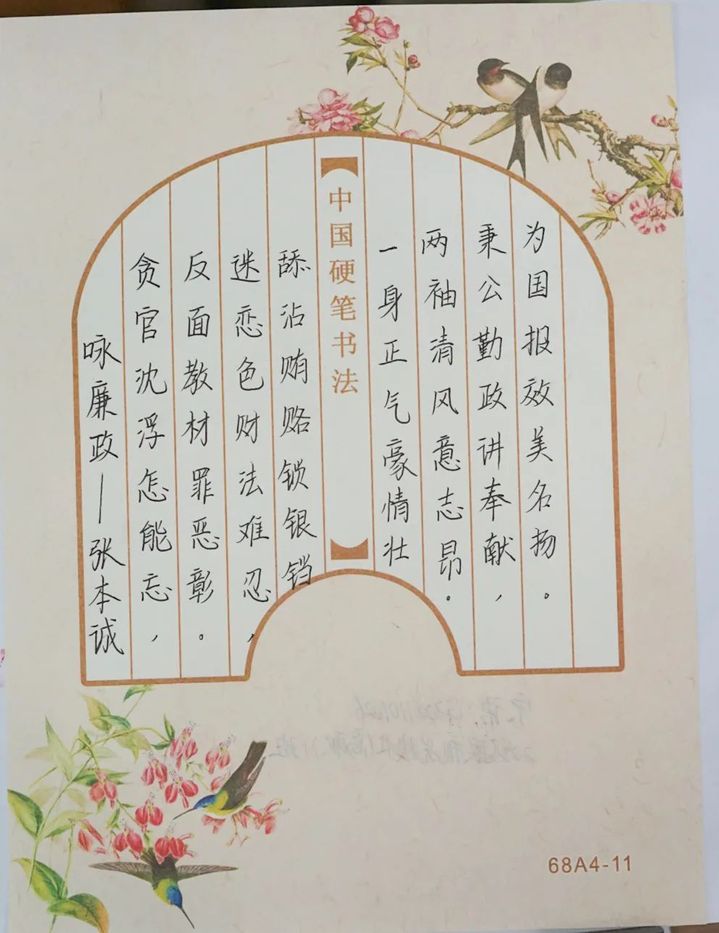 咏廉政—张本诚
贪官沈浮怎能忘，
反面教材罪恶彰。
迷恋色财法难忍，
舔沾贿赂锁银铛
中国硬笔书法
一身正气豪情壮
两袖清风意志昂。
秉公勤政讲奉献，
为国报效美名扬。
68A4-11